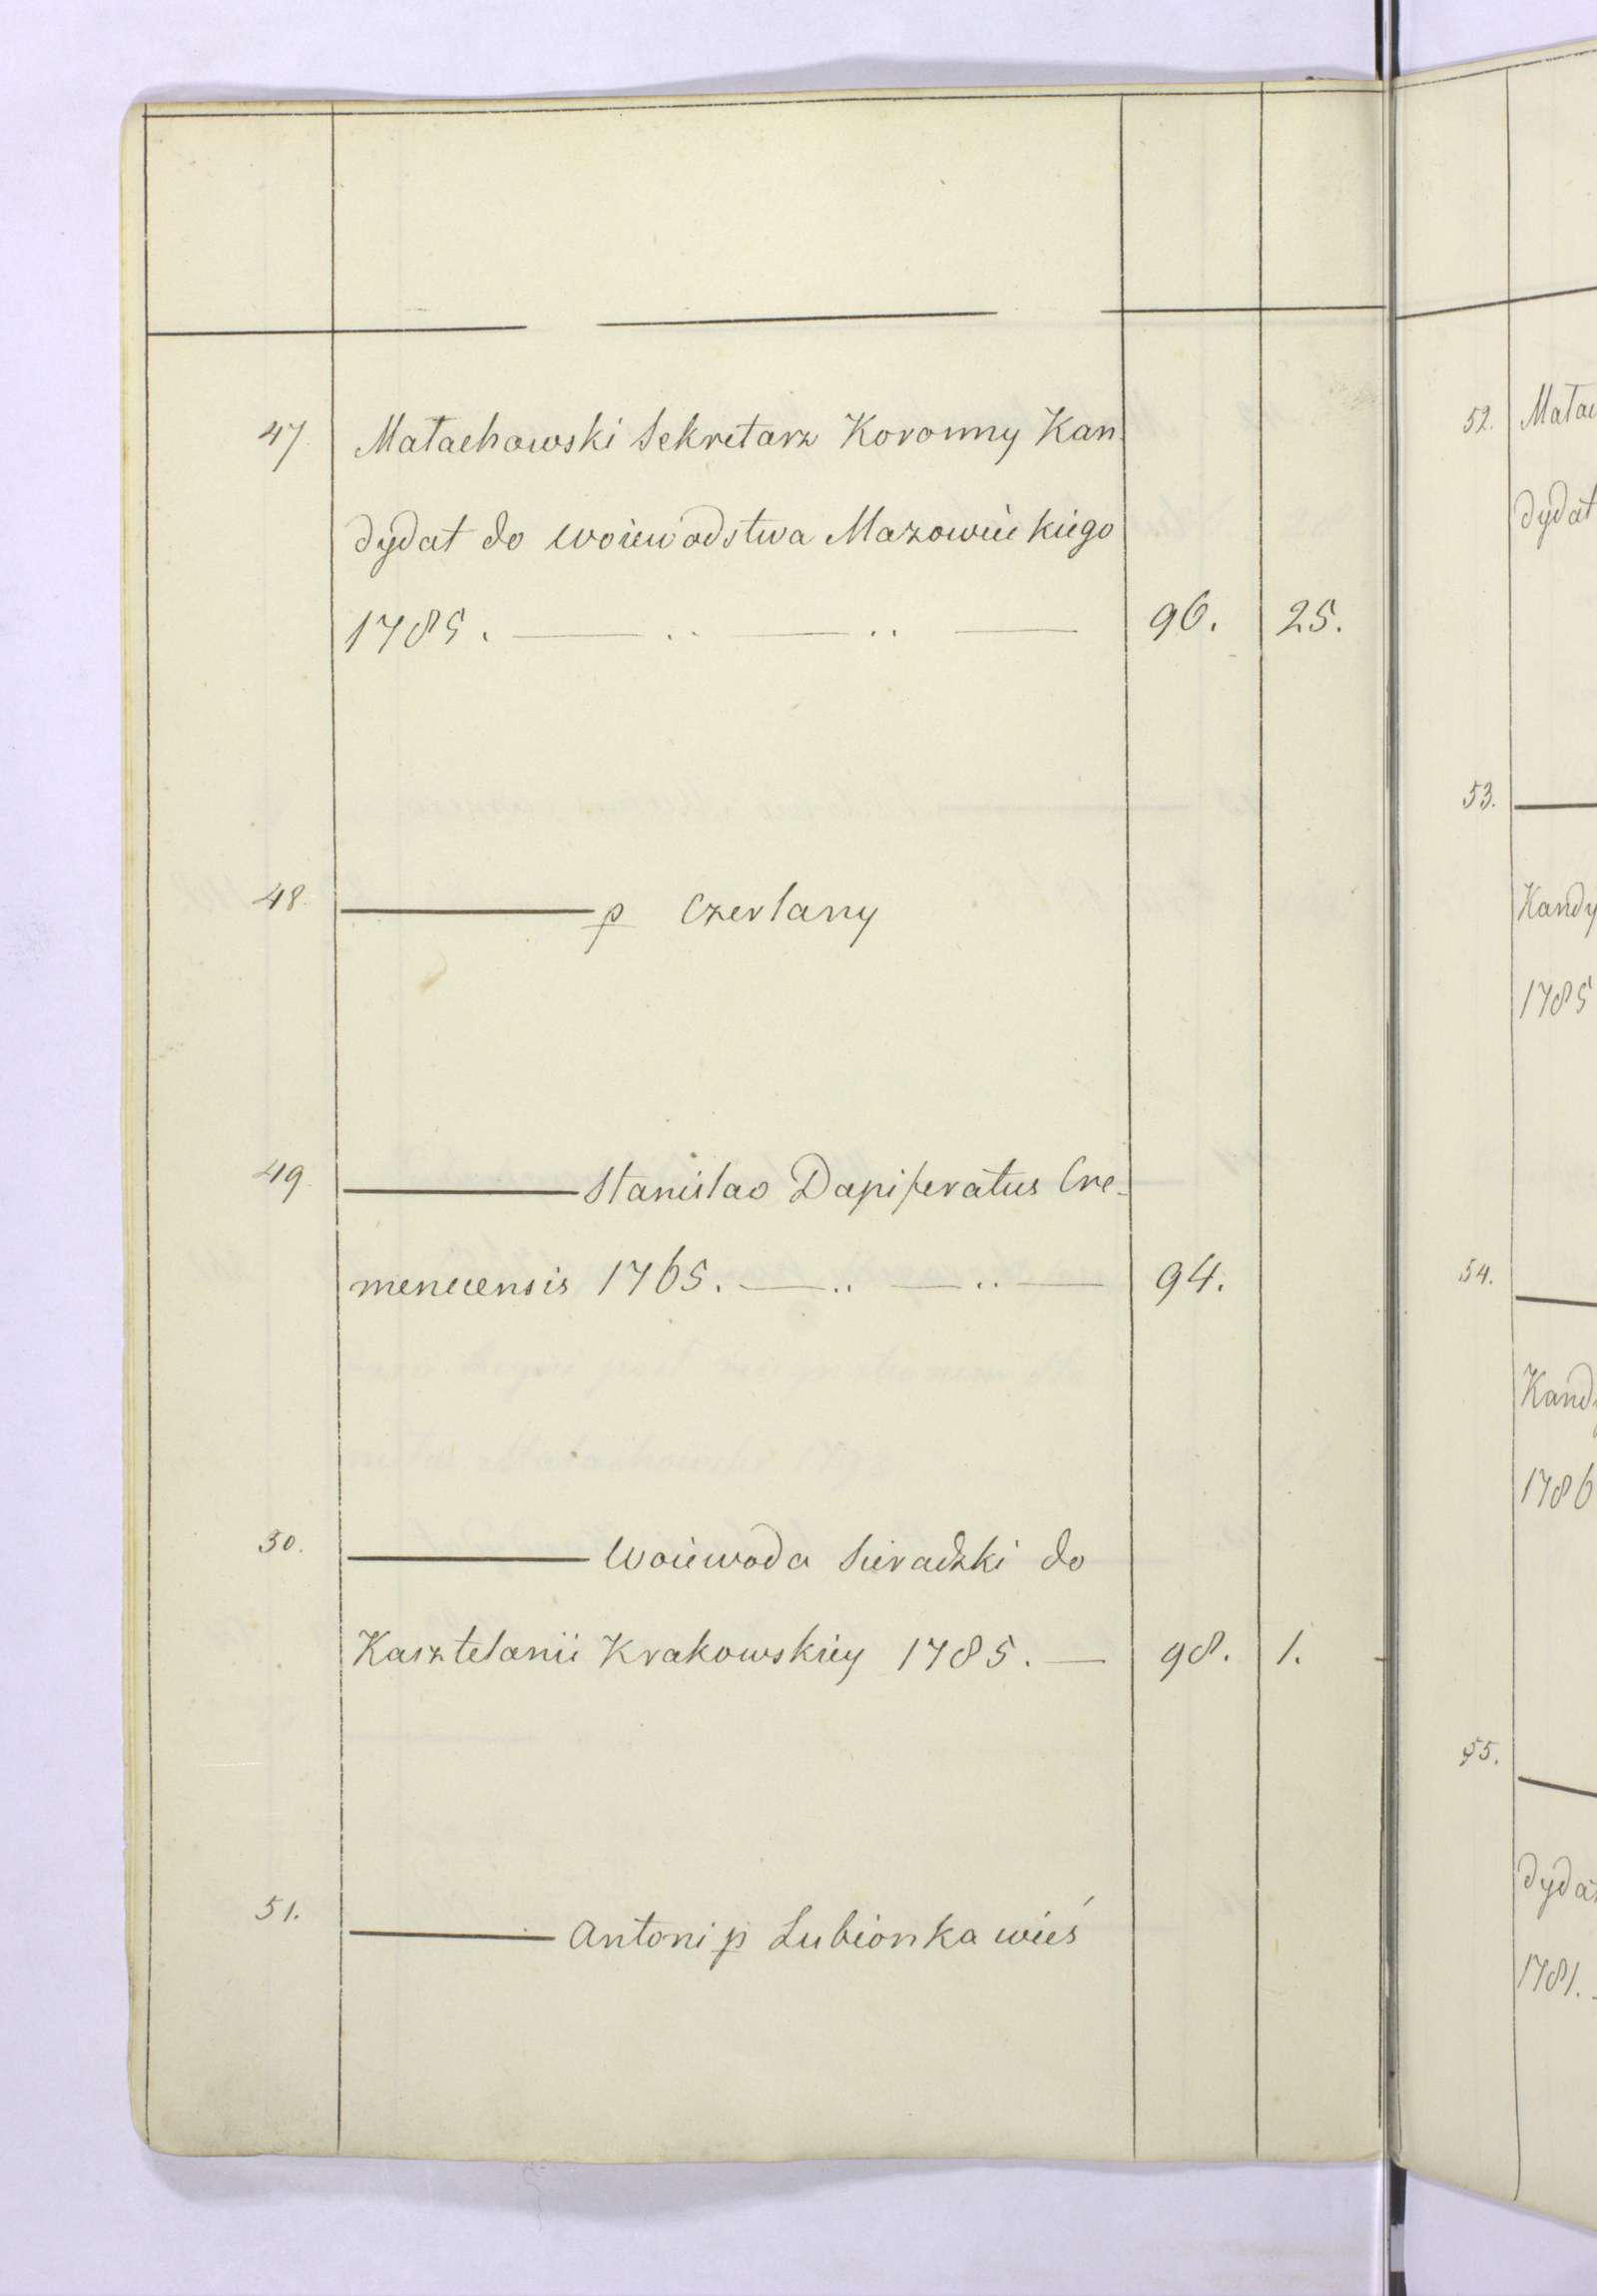 47. Małachowski Sekretarz Koronny Kan
dydat do Woiewodstwa Mazowieckiego
1785. — .. — .. — 96. 25.
48. — p Czerlany
49. — Stanislao Dapiferatus Cre-
menecensis 1765. — .. — .. — 94.
50. — Woiewoda Sieradzki do
Kasztelanii Krakowskiey 1785. — 98. 1.
51. — Antoni p Lubionka wieś
52. Małac
dydat
53. —
Kandy
1785
54. —
Kandy
1786
55. —
dydat
1781.